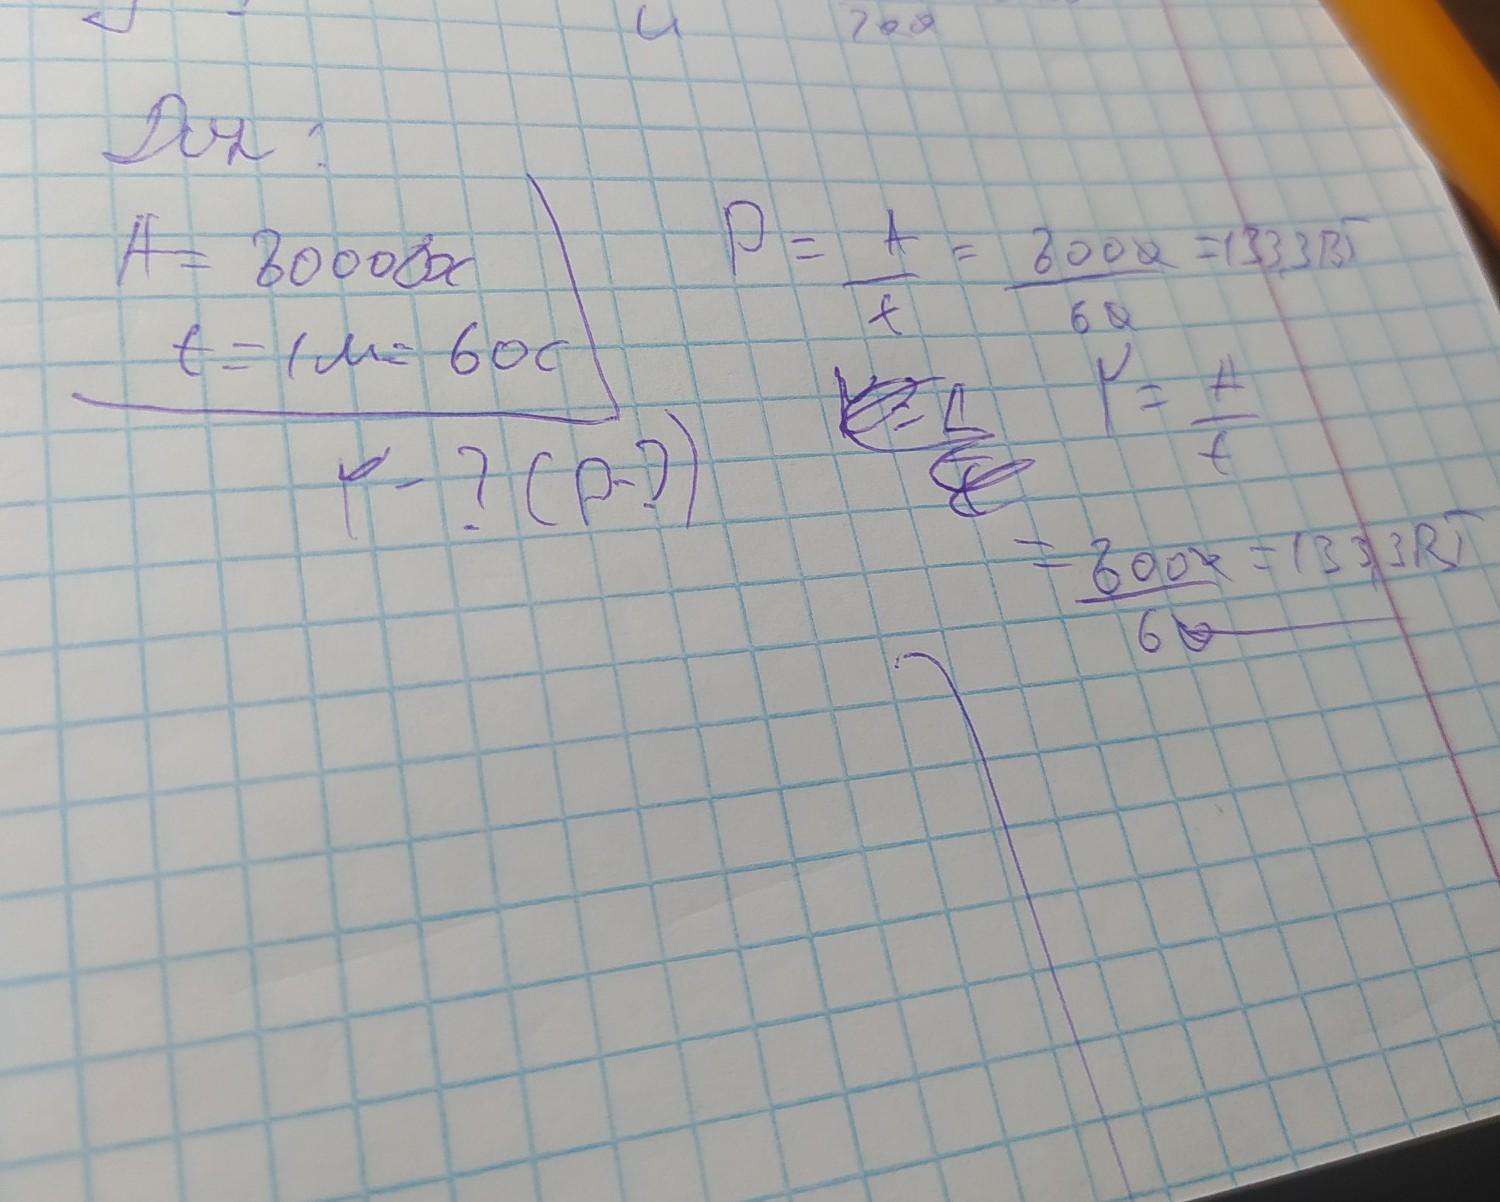 A = 8000Дж
t = 1м = 60с
P - ? (p-?)
P = A / t = 8000 / 60 = 133,3Вт
P = A / t
= 8000 / 60 = 133,3Вт